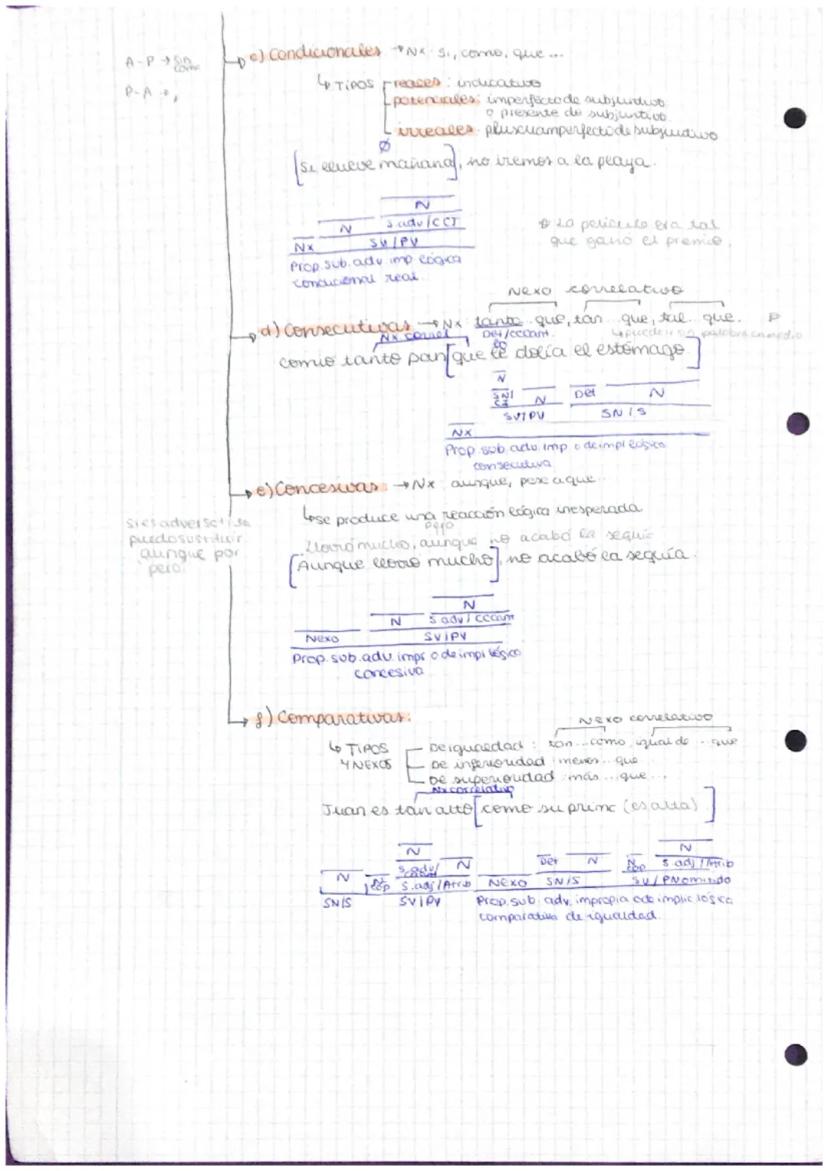 c) Condicionales → Nx: si, como, que ...
A-P → sin coma
P-A → ,
↳ TIPOS
reales: indicativo
potenciales: imperfecto de subjuntivo
o presente de subjuntivo
irreales: pluscuamperfecto de subjuntivo
Ø
[Si llueve mañana], no iremos a la playa.
N
N S.adv/CCT
Nx SV/PV
Prop. sub. adv. imp lógica
condicional real
La película era tal
que ganó el premio
Nexo correlativo
d) Consecutivas → Nx tanto que, tan... que, tal... que.
Nx correl Det/CCCant.
palabra en medio
Comió tanto pan [que le dolía el estómago]
N
SN/CI N Det N
SV/PV SN/S
Nx
Prop. sub. adv. imp o de impl lógica
consecutiva
e) Concesivas → Nx aunque, pese a que...
↳ se produce una reacción lógica inesperada
si es adversativa
puedo sustituir
aunque por
pero.
pero
Llovió mucho, aunque no acabó la sequía
[Aunque llovió mucho], no acabó la sequía.
N
N S.adv/CCCant
Nexo SV/PV
Prop. sub. adv. impr o de impl lógica
concesiva
f) Comparativas:
Nexo correlativo
↳ TIPOS
Y NEXOS
De igualdad: tan...como, igual de...que
De inferioridad: menos...que
De superioridad: más...que...
Nx correlativo
Juan es tan alto [como su prima (es alta)]
N N
S.adv/ N Det N N S.adj/Atrib
N cop S.adj/Atrib Nexo SN/S SV/PN omitido
SN/S SV/PV Prop. sub. adv. impropia o de implic lógica
comparativa de igualdad.